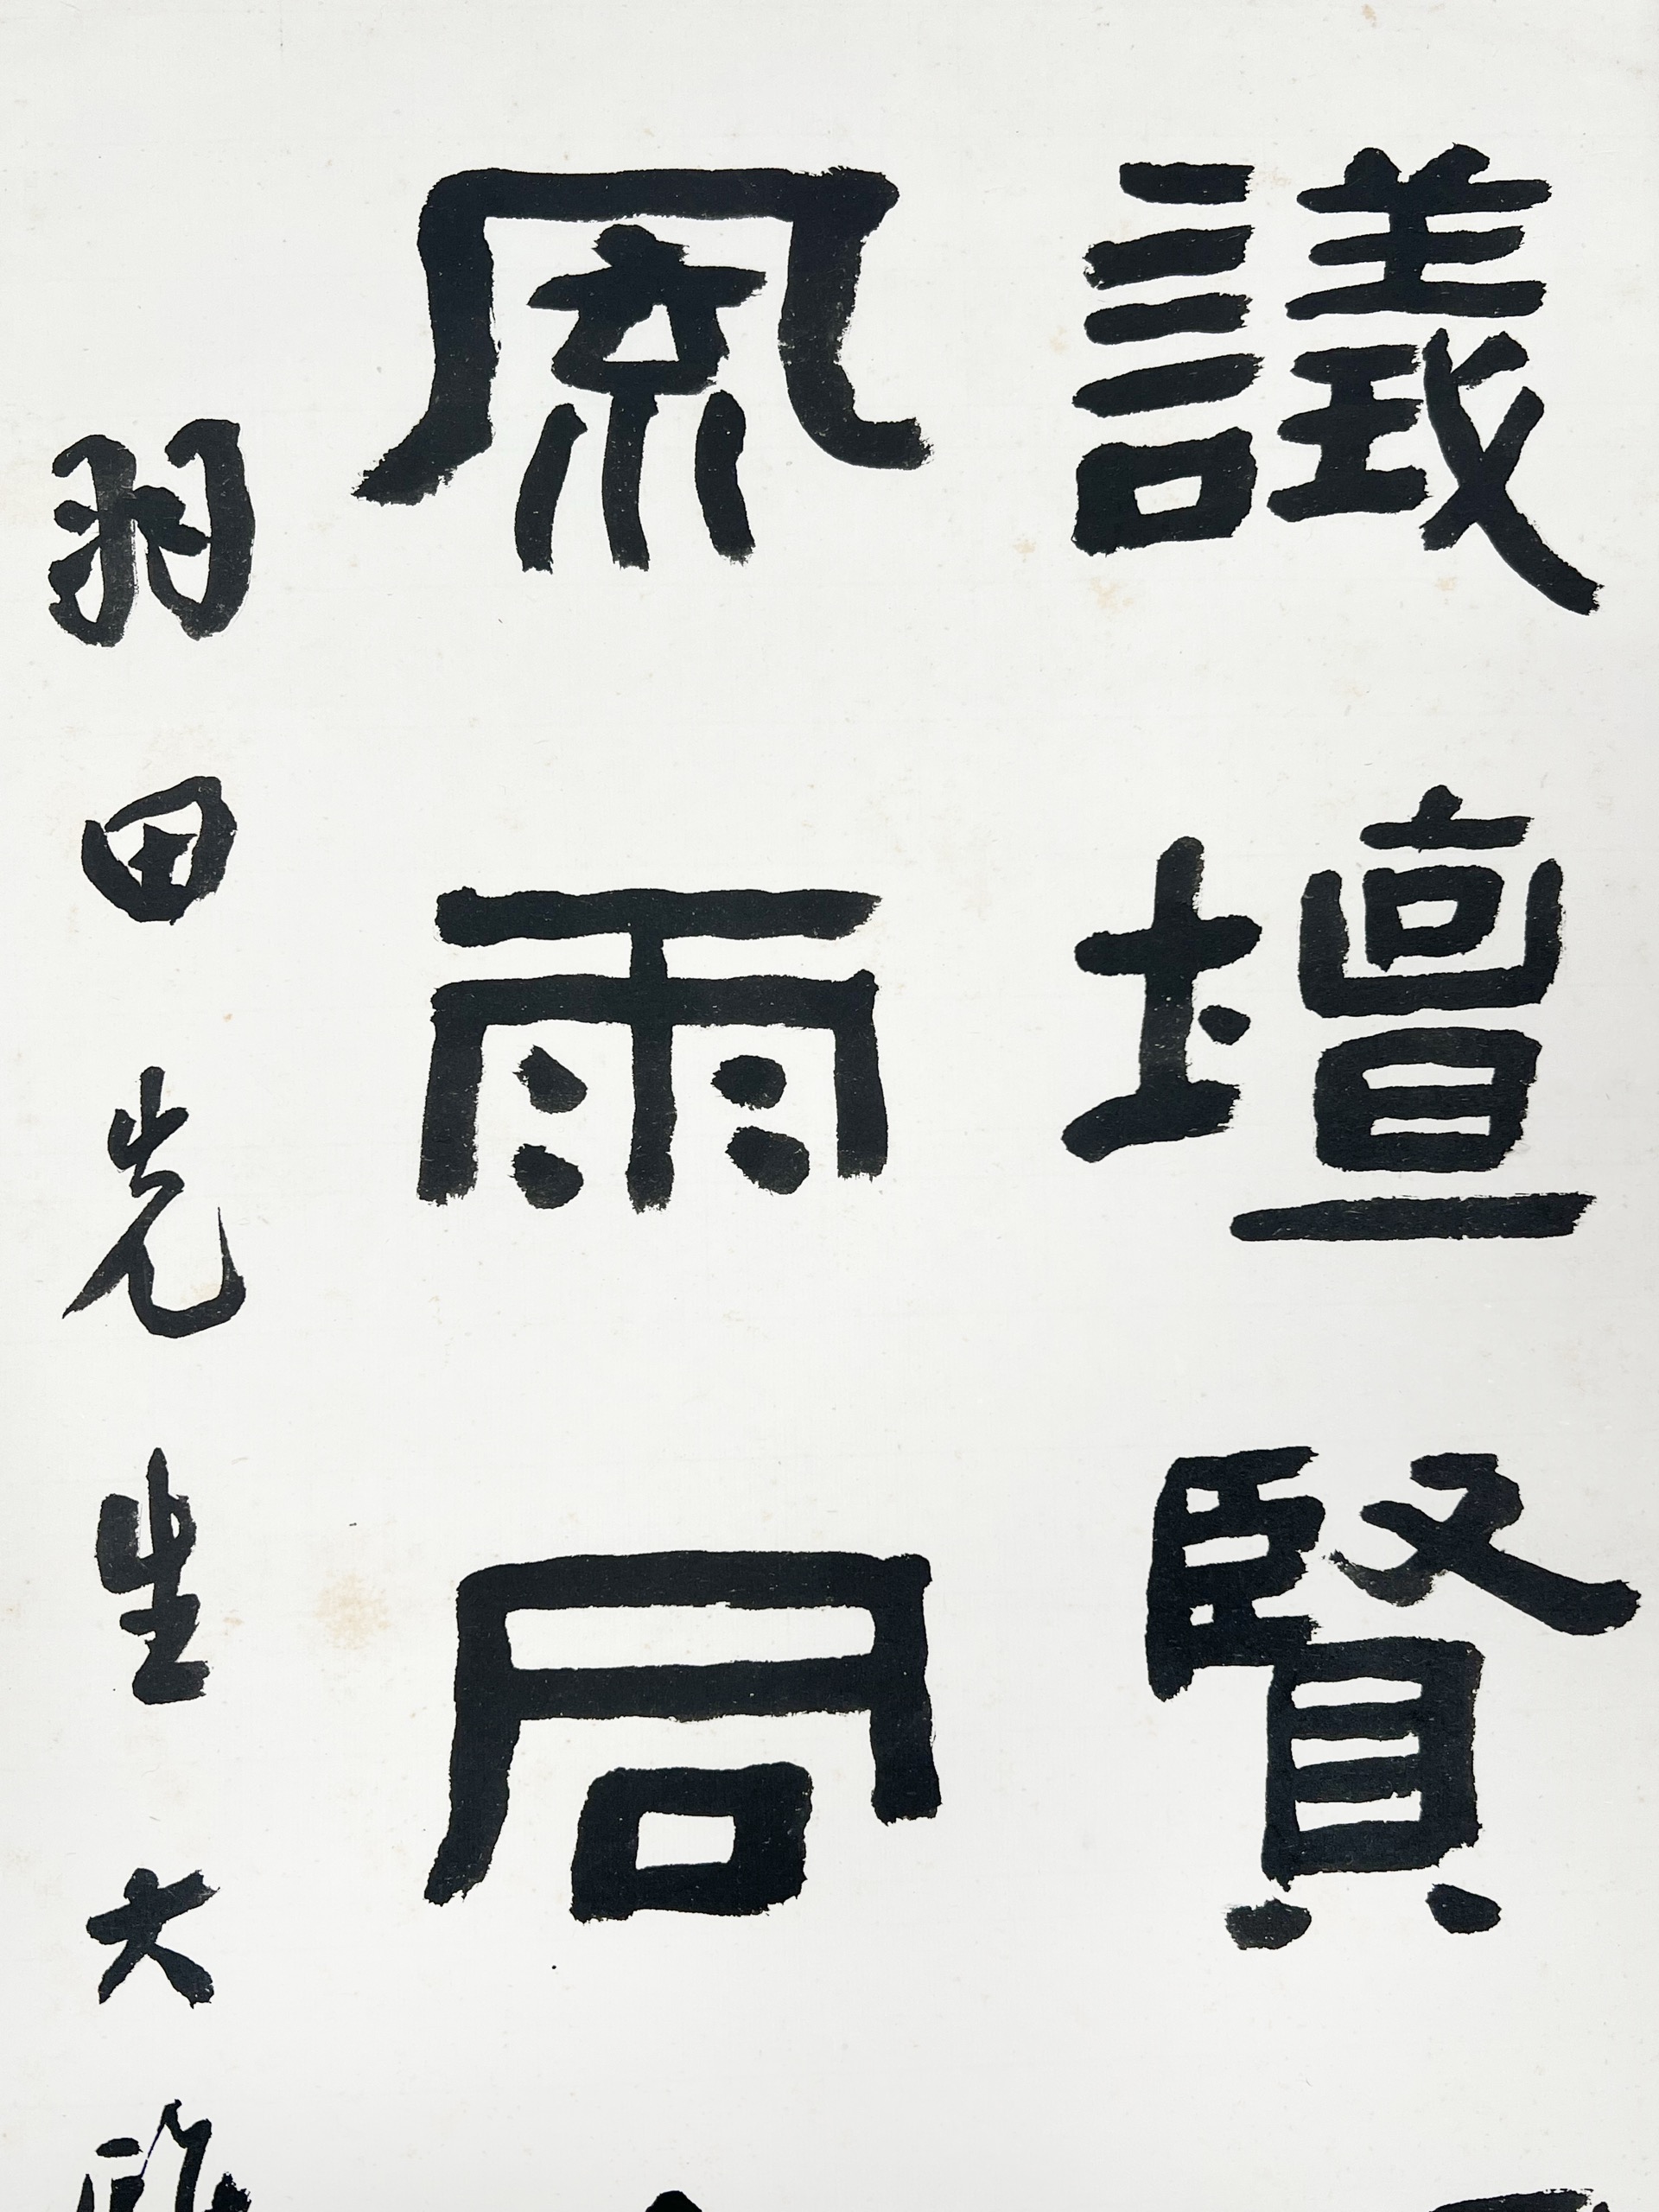 議壇賢
風雨同
羽田先生大雅